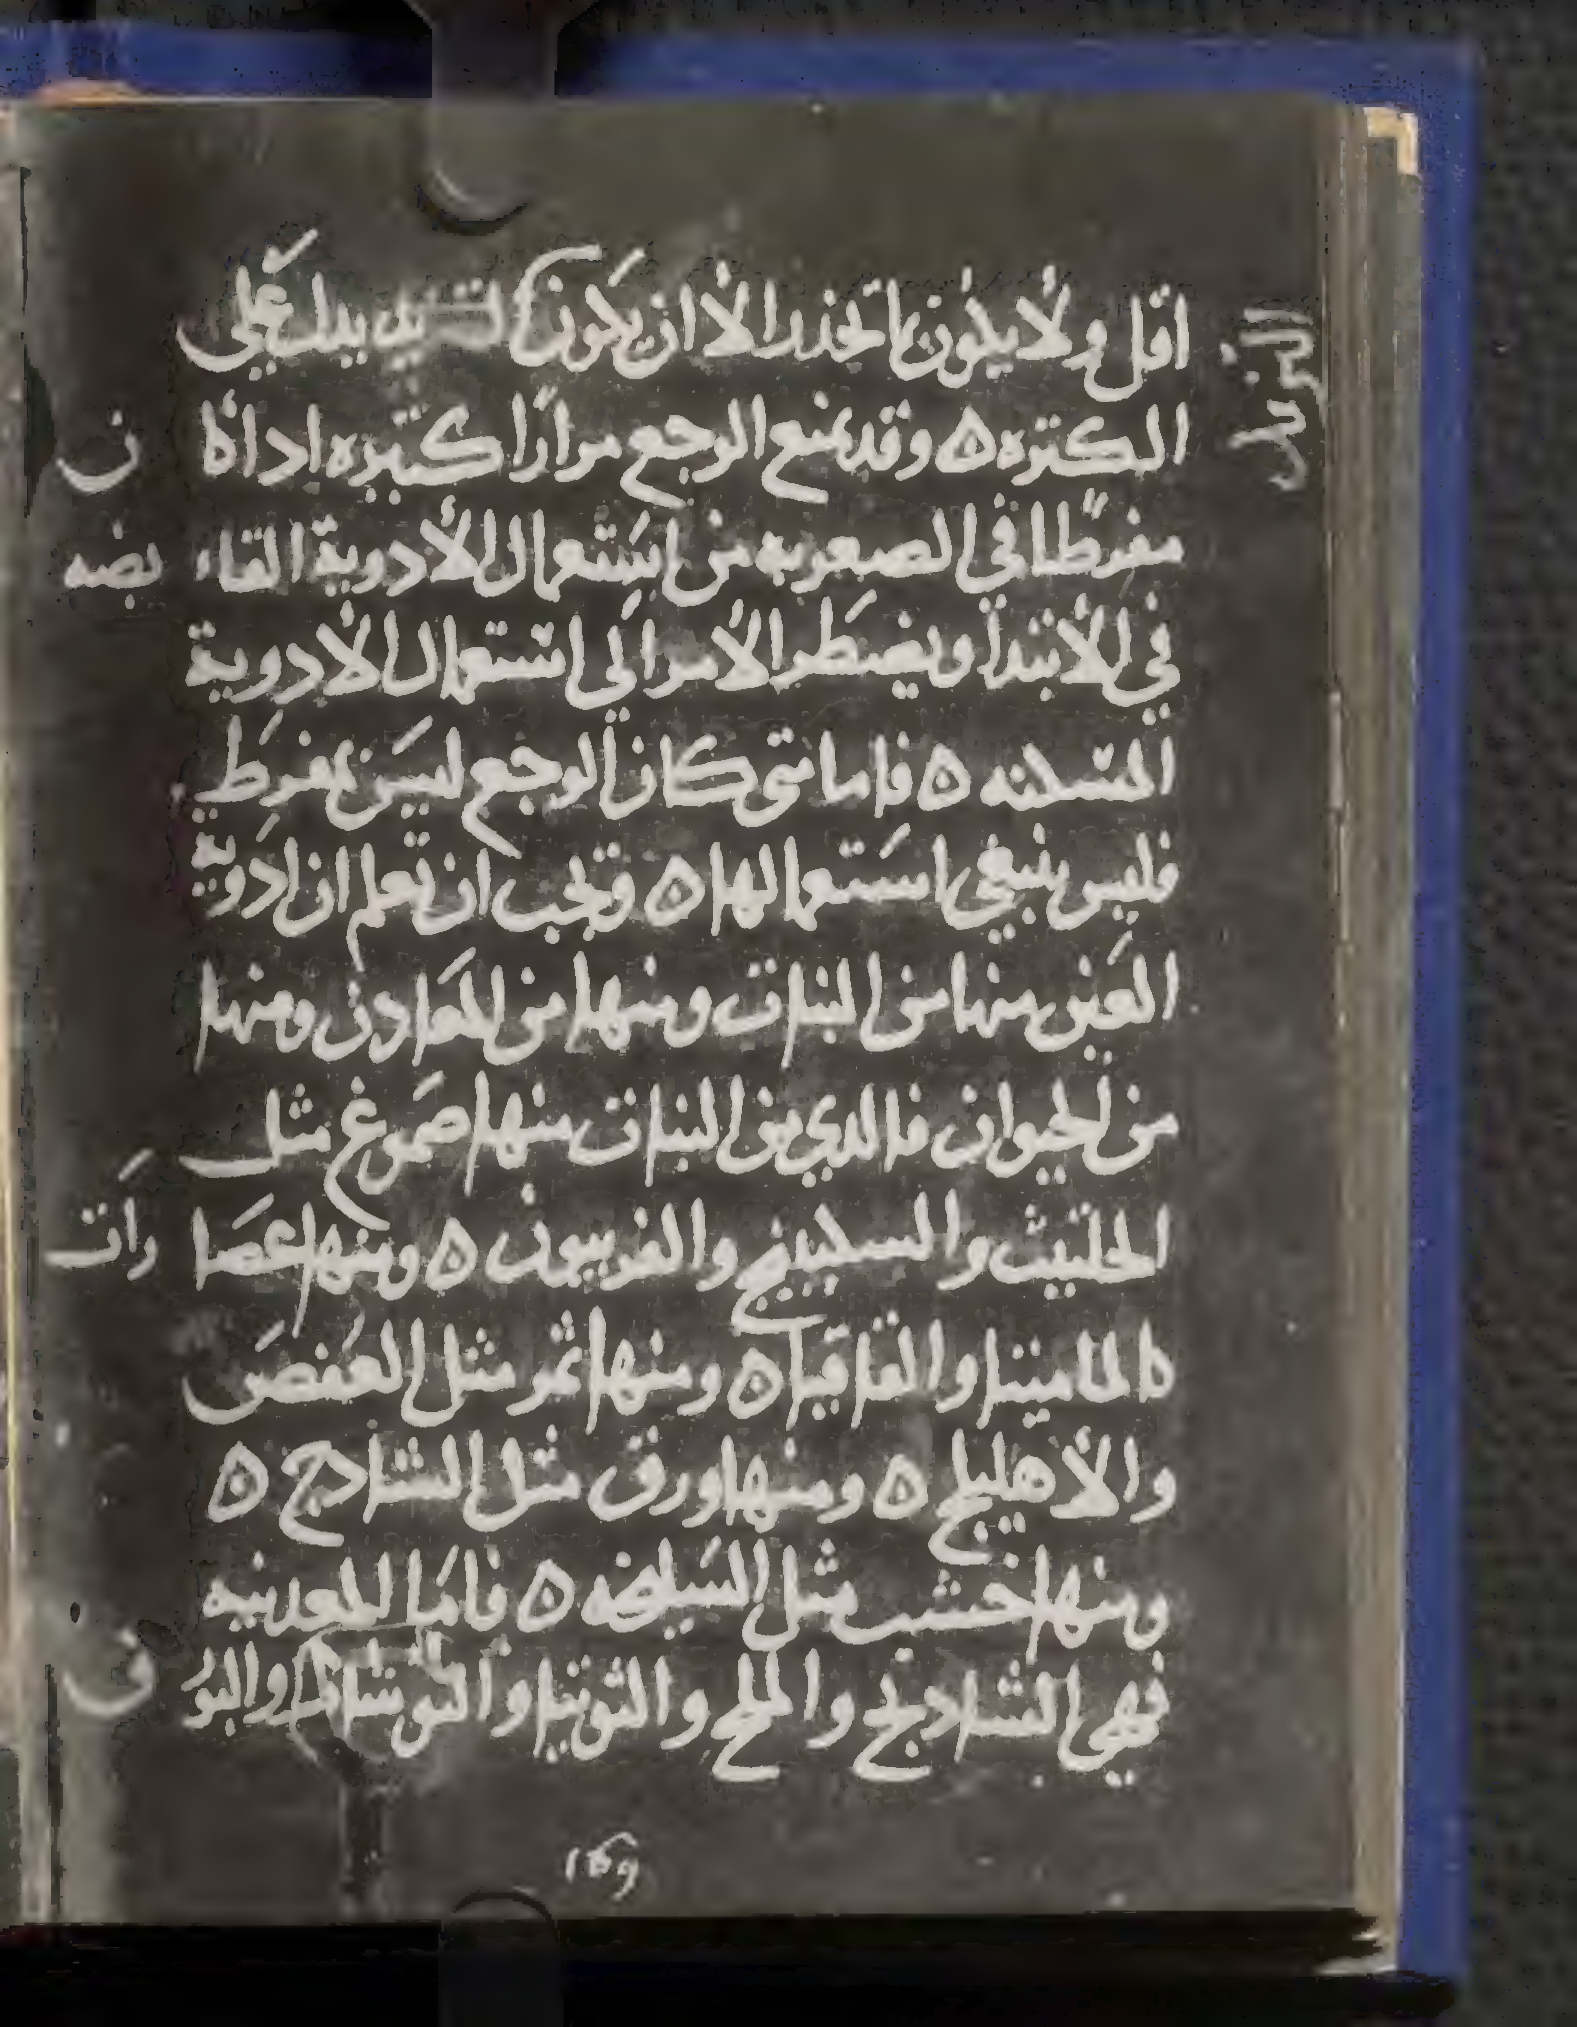 اقل ولا يكون ما تحذر الا ان يكون يدل على
الكثره ه وقد يمنع الوجع مرارًا كثيره اذا كان
مفرطًا في الصعوبه من استعمال الأدوية القابضه
في الأبتدا ويضطر الأمر الى استعمال الأدوية
المسكنه ه فاما متى كان الوجع ليس بمفرط
فليس ينبغي استعمالها ه ويجب ان تعلم ان ادوية
العين منها من النبات ومنها من المعادن ومنها
من الحيوان فالدي من النبات منها صموغ مثل
الحلتيث والسكبينج والفربيون ه ومنها عصارات
كالماميثا والقاقيا ه ومنها ثمر مثل العفص
والأهليلج ه ومنها ورق مثل الشادج ه
ومنها خشب مثل السليخه ه فاما المعدنيه
فهي الشادنج والملح والتوتيا والنوشادر والبورق
169